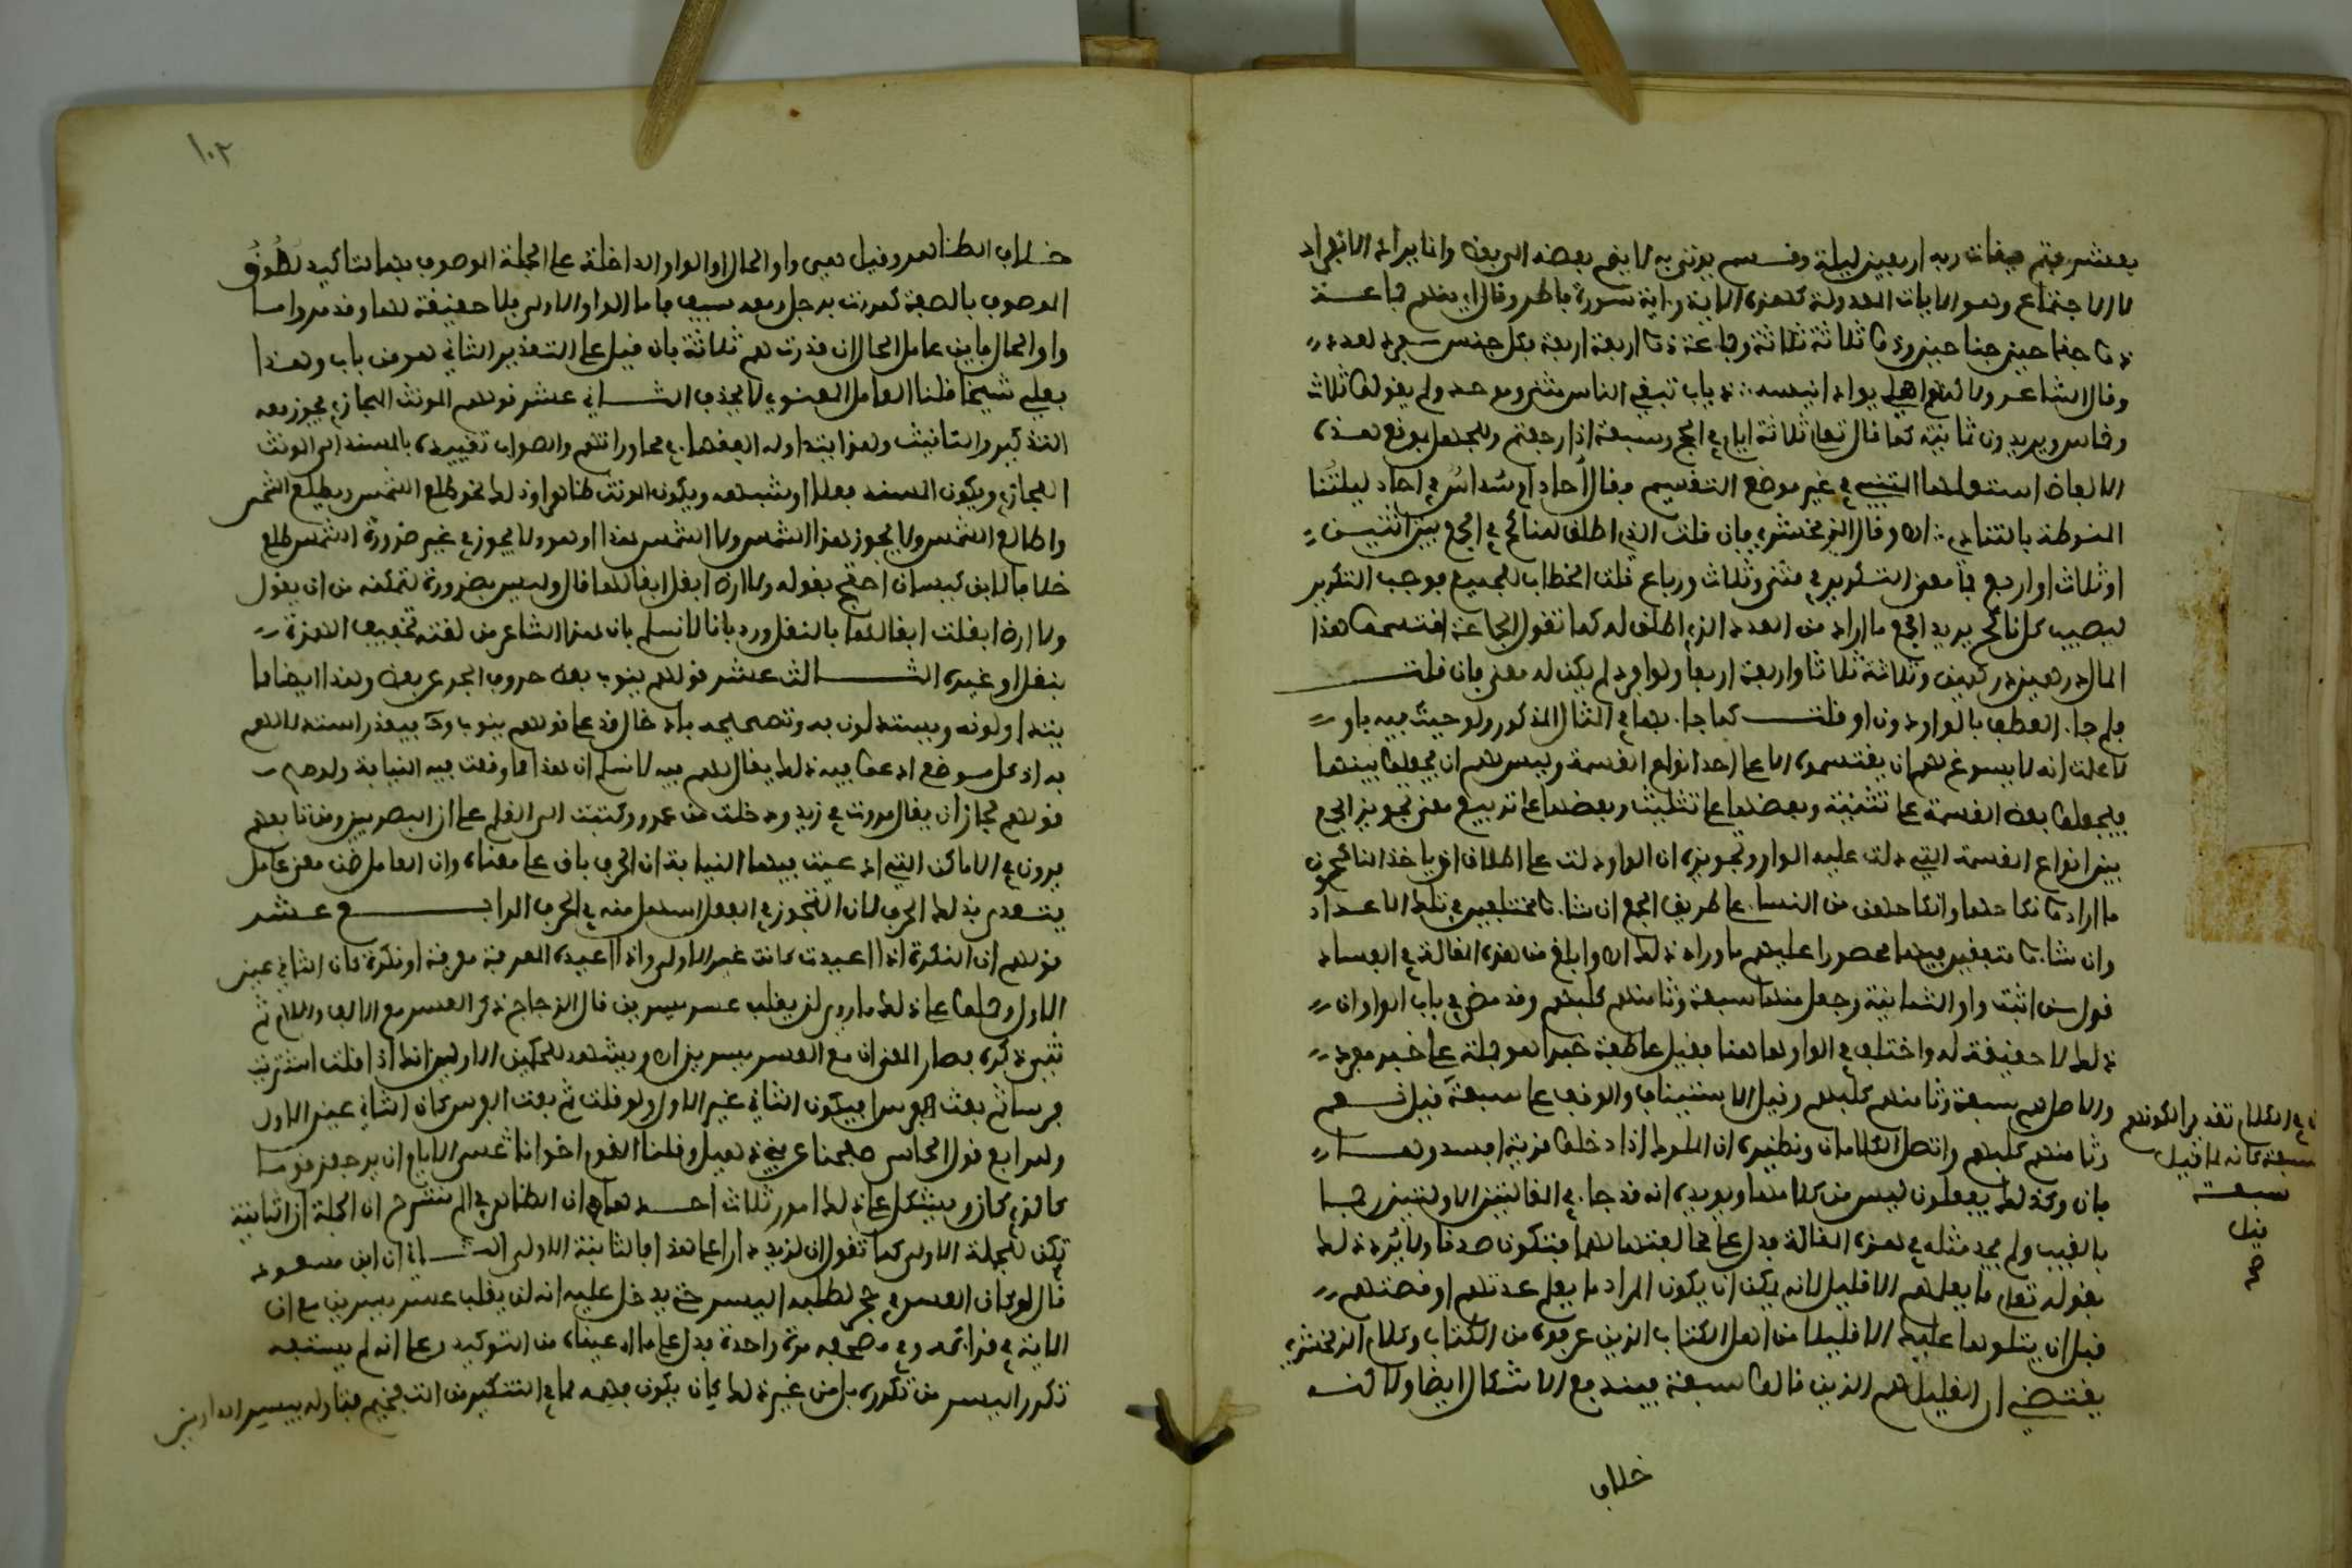 بعشر فتم ميقات ربه اربعين ليلة وقسم يوتى به لا يقع بعضه الى بعض وانما يراد به الانفراد
لا الاجتماع وهو الايات المعدولة كهذه الاية واية سورة فاطر وقال اى منهم جماعة
ذوا جناحين جناحين وذوا ثلاثة ثلاثة وجماعة ذوا اربعة اربعة فكل جنس مفرد بعدد
وقال الشاعر ولاكنما اهلى بواد انيسه ذياب تبغى الناس مثنى وموحد ولم يقولوا ثلاث
وخماس ويريدون ثمانية كما قال تعالى ثلاثة ايام في الحج وسبعة اذا رجعتم وللجهل بموقع هذه
الالفاظ استعملها المتنبي في غير موضع التقسيم فقال أحاد ام سُداسٌ في احاد لييلتُنا
المنوطة بالتنادي اه وقال الزمخشري فان قلت الذي اطلق للناكح في الجمع بين اثنتين
او ثلاث او اربع فما معنى التكرير في مثنى وثلاث ورباع قلت الخطاب للجميع فوجب التكرير
ليصيب كل ناكح يريد الجمع ما اراد من العدد الذي اطلق له كما تقول للجماعة اقتسموا هذا
المال درهمين درهمين وثلاثة ثلاثة واربعة اربعة ولو افردت لم يكن له معنى فان قلت
فلم جاء العطف بالواو دون او قلت كما جاء بها في المثال المذكور ولو جيت فيه باو
لاعلمت انه لا يسوغ لهم ان يقتسموه الا على احد انواع القسمة وليس لهم ان يجمعوا بينها
فيجعلوا بعض القسمة على تثنية وبعضها على تثليث وبعضها على تربيع وذهب معنى تجويز الجمع
بين انواع القسمة التي دلت عليه الواو وتحريره ان الواو دلت على اطلاق ان ياخذ الناكحون
ما ارادوا نكاحها وانكاحهن من النساء على طريق الجمع ان شاءوا مختلفين في تلك الاعداد
وان شاءوا متفقين فيها محصورا عليهم ما وراء ذلك اه وابلغ من هذه المقالة في الفساد
قول من اثبت واو الثمانية وجعل منها سبعة وثامنهم كلبهم وقد مضى في باب الواو ان
ذلك لا حقيقة له واختلف في الواو هاهنا فقيل عاطفة خبرا هو جملة على خبر مفرد
والاصل هم سبعة وثامنهم كلبهم وقيل للاستيناف والوقف على سبعة قيل نعم
وثامنهم كلبهم واتصل الكلامان ونظيره ان الملوك اذا دخلوا قرية افسدوها
فان وكذلك يفعلون ليس من كلامها ويويده انه قد جاء في المقالتين الاوليتين رجما
بالغيب ولم يجئ مثله في هذه المقالة فدل على مخالفتها لهما فتكون صدقا ولا يَرِد ذلك
بقوله تعالى ما يعلمهم الا قليل لانه يمكن ان يكون المراد ما يعلم عدتهم او قصتهم
قبل ان يتلوها عليك الا قليلا من اهل الكتاب الذين عرفوه من الكتاب وكلام الزمخشري
يقتضي ان القليل هم الذين قالوا سبعة فيندفع الاشكال ايضا ولاكنه
خلاف
في الكلام تقدير لكونهم
سبعة كانه لما قيل
سبعة
قيل
صح
١٠٢
خلاف الظاهر وقيل هي واو الحال او الواو الداخلة على الجملة الموصوف بها لتاكيد لصُوقِ
الموصوف بالصفة كمررت برجل ومعه سيف فاما الواو الاولى فلا حقيقة لها وقد مر واما
واو الحال فاين عامل الحال ان قدرت هم ثلاثة فان قيل على التقدير الثاني هو من باب وهذا
بعلي شيخا قلنا العامل المعنوي لا يحذف الثاني عشر قولهم المونث المجازي يجوز معه
التذكير والتانيث وهذا يتداوله الفقهاء في محاوراتهم والصواب تقييده بالمسند الى المونث
المجازي ويكون المسند فعلا او شبهه ويكون المونث ظاهرا وذلك نحو طلع الشمس ويطلع الشمس
واطالع الشمس ولا يجوز هذا الشمس ولا الشمس هذا او هو ولا يجوز في غير ضرورة الشمس طلع
خلافا لابن كيسان احتج بقوله ولا ارض ابقل ابقالها قال وليس بضرورة لتمكنه من ان يقول
ولا ارض ابقلت ابقالها بالنقل ورد بانا لا نسلم بان هذا الشاعر من لغته تخفيف الهمزة
بنقل او غيره الثالث عشر قولهم ينوب بعض حروف الجر عن بعض وهذا ايضا مما
يتداولونه ويستدلون به وتصحيحه بادخال قد على قولهم ينوب وحـ فيتعذر استدلالهم
به اذ كل موضع ادعوا فيه ذلك يقال لهم فيه لا نسلم ان هذا مما وقعت فيه النيابة ولو صح
قولهم لجاز ان يقال مررت في زيد ودخلت من عمرو وكتبت الى القلم على ان البصريين ومن تابعهم
يرون في الاماكن التي ادعيت فيها النيابة ان الحرف باق على معناه وان العامل ضمن معنى عامل
يتعدى بذلك الحرف لان التجوز في الفعل اسهل منه في الحرف الرابع عشر
قولهم ان النكرة اذا اعيدت كانت غير الاولى واذا اعيدت المعرفة معرفة او نكرة كان الثاني عين
الاول وحملوا على ذلك ما روي لن يغلب عسر يسرين قال الزجاج ذكر العسر مع الالف واللام ثم
ثنى ذكره فصار المعنى ان مع العسر يسرين اه ويشهد للحكمين الاولين انك اذا قلت اشتريت
فرسا ثم بعت فرسا فيكون الثاني غير الاول ولو قلت ثم بعت الفرس كان الثاني عين الاول
وللرابع قول الحماسي صفحنا عن بني ذهيل وقلنا القوم اخوانا عسى الايام ان يرجعن قوما
كالذي كانوا ويشكل على ذلك امور ثلاث احدها ان الظاهر في الم نشرح ان الجملة الثانية
تكرر للجملة الاولى كما تقول ان لزيد دارا على هذا فالثانية الاولى الثاني ان ابن مسعود
قال لو كان العسر في جحر لطلبه اليسر حتى يدخل عليه انه لن يغلب عسر يسرين مع ان
الاية في قراءته وفي مصحفه مرة واحدة فدل على ما ادعيناه من التوكيد وعلى انه لم يستفد
تكرر اليسر من تكرره بل من غير ذلك كان يكون فهمه مما في التنكير من التفخيم فتاوله بيسر الدارين